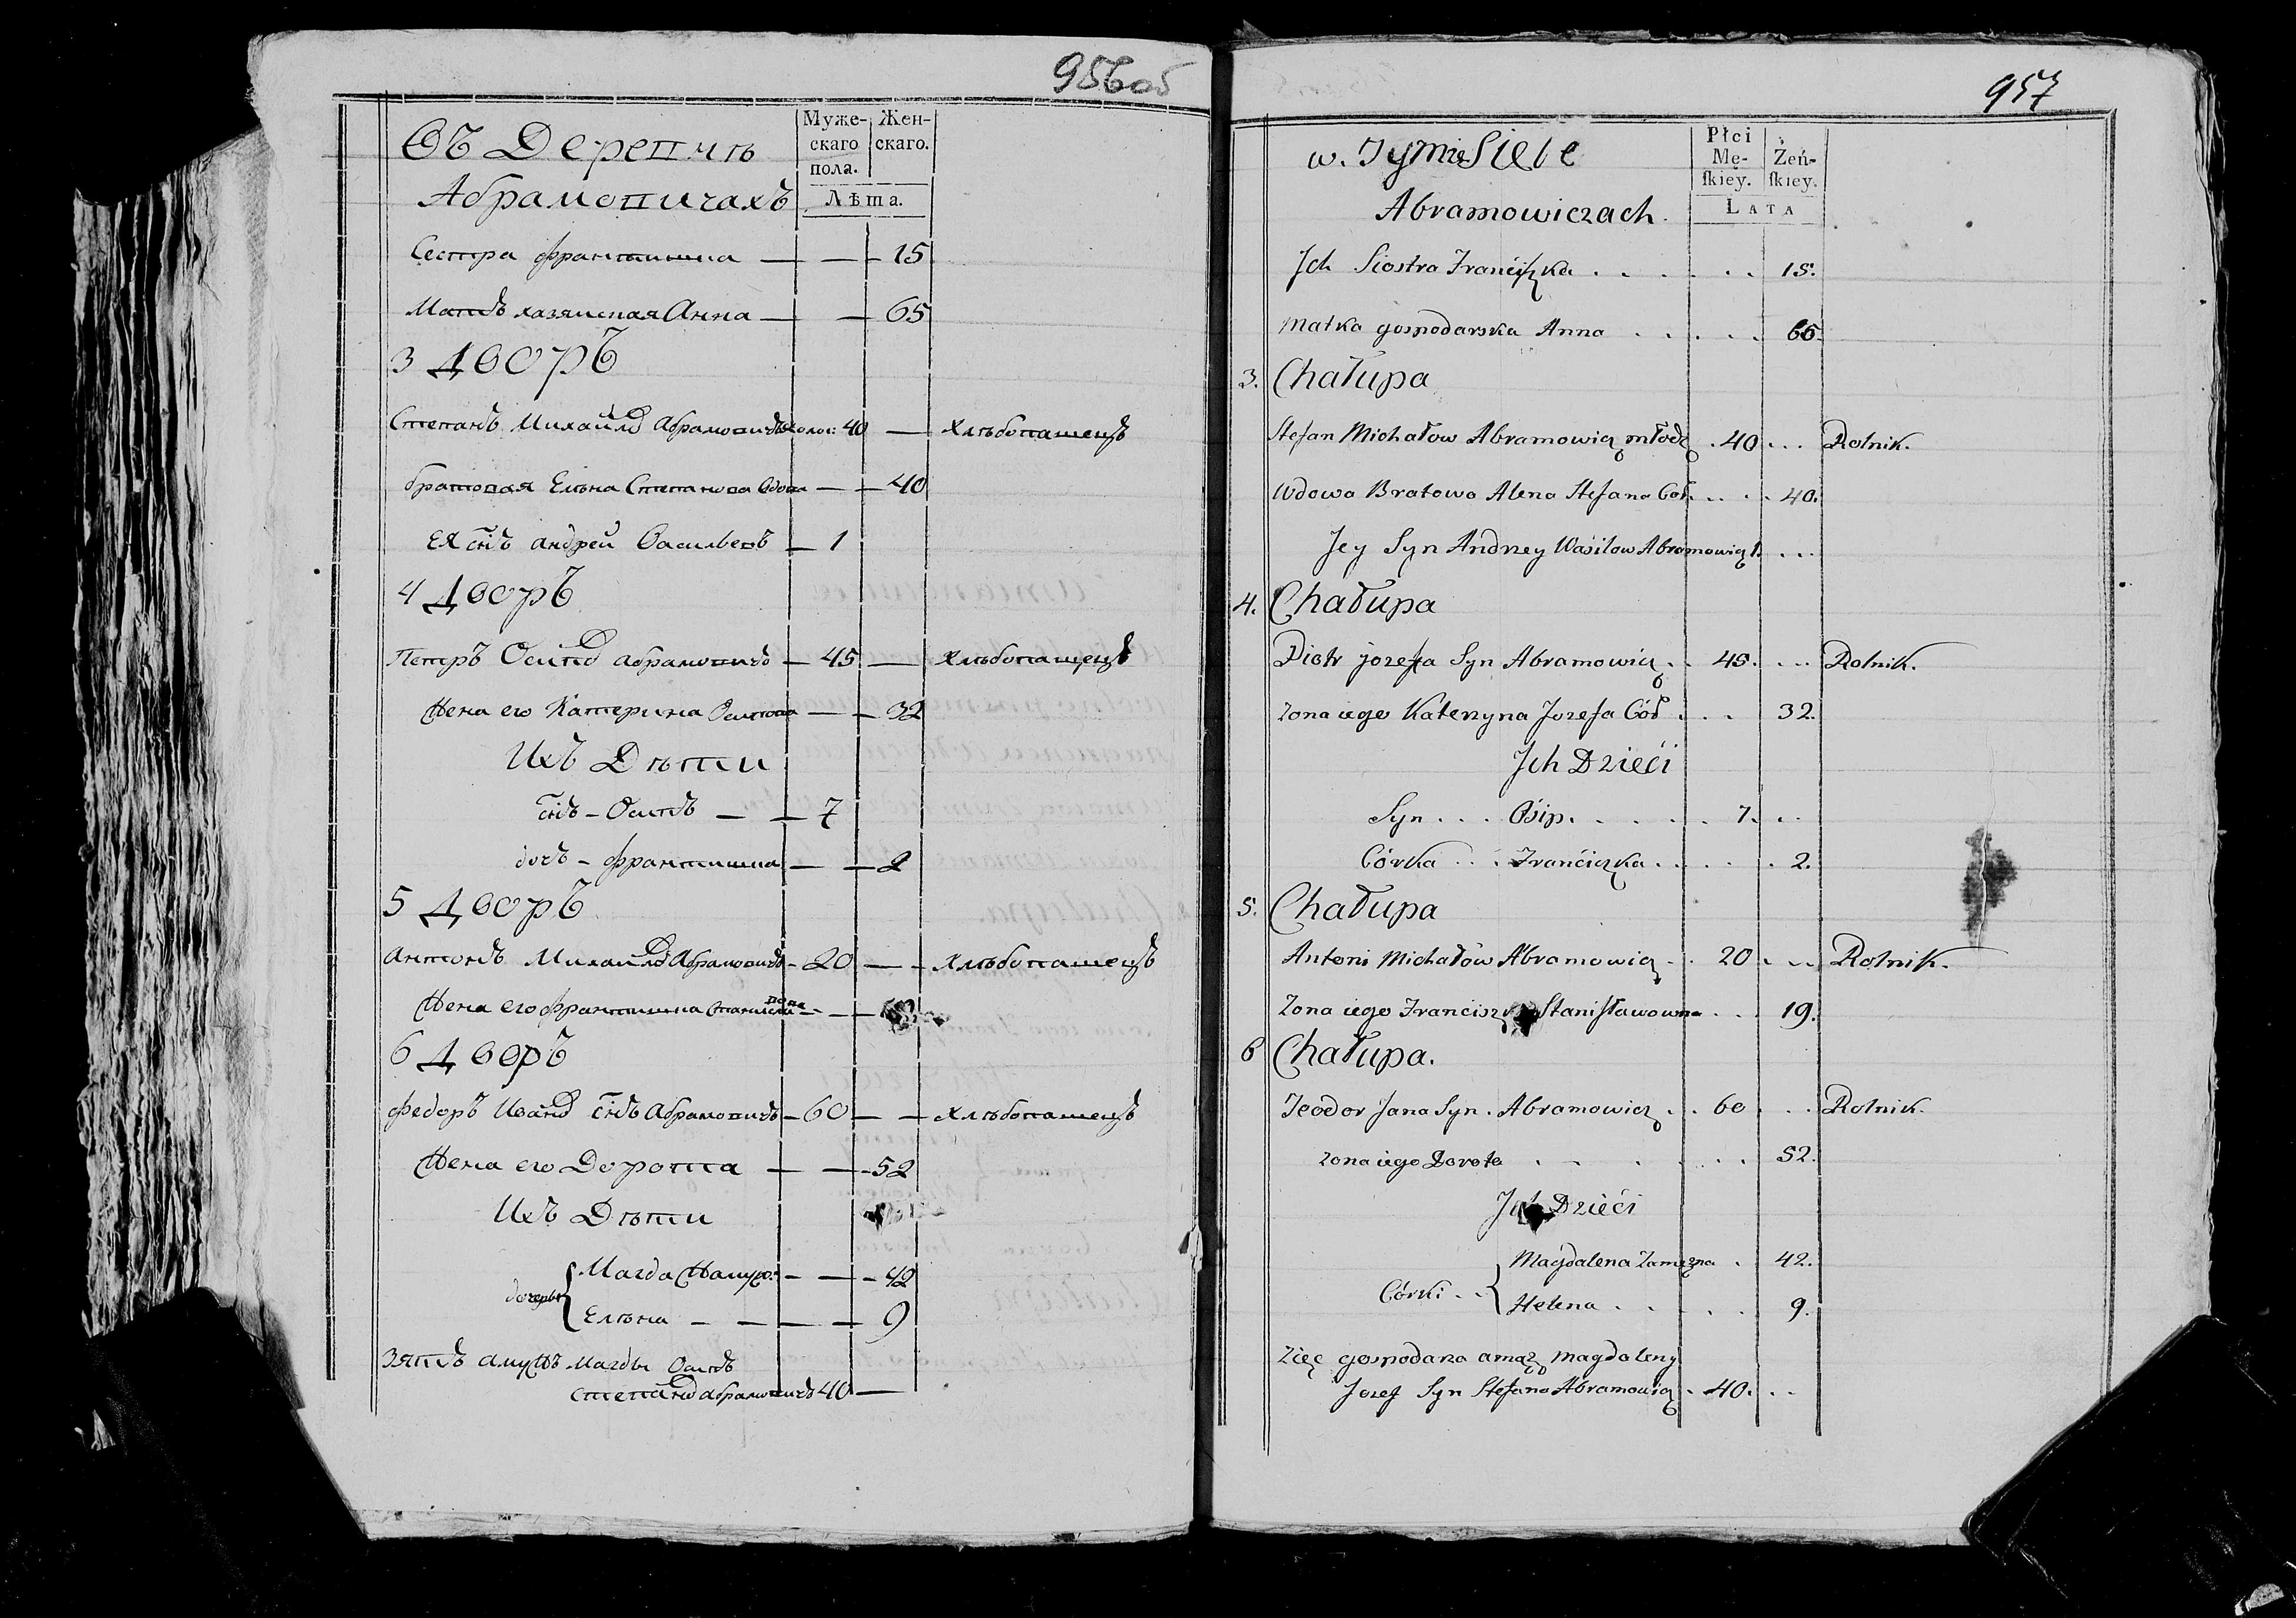 956об
Въ Деревнѣ
Абрамовичахъ
Муже-
скаго
пола.
Жен-
скаго.
Лѣта.
Сестра францишка — — 15
Матъ хазяиская Анна — — 65
3 Дворъ
Степанъ Михайлов Абрамовичъ холос: 40 — Хлѣбопашецъ
братовая Елѣна Степанова Вдова — — 40
Ея снъ андрей Васильевъ — 1
4 Дворъ
Петръ Осипов абрамовичъ — 45 — Хлѣбопашецъ
Жена его Катерина Осипова — — 32
Ихъ Дѣти
снъ – Осипъ — — 7
дочъ – францишка — — 2
5 Дворъ
антонъ Михайлов Абрамовичъ – 20 — — Хлѣбопашецъ
Жена его францишка Станиславова — —
6 Дворъ
федоръ Иванов снъ Абрамовичъ – 60 — — Хлѣбопашецъ
Жена его Дорота — — 52
Ихъ Дѣти
дочери { Магда Замуж: — — 42
Елѣна — — — — 9
Зять а мужъ Магды Осипъ
степанов абрамовичъ 40 —
957
w. Tymże Siele
Abramowiczach.
Płci
Mę-
ſkiey.
Żeń-
ſkiey.
LATA
Jch Siostra Franciſzka . . . . . . 15.
Matka gospodarska Anna . . . . . 65.
3. Chałupa
Stefan Michałow Abramowicz młodz . 40 . . . Rolnik.
Wdowa Bratowa Alena Stefana Cor. . . . . 40.
Jey Syn Andrzey Wasilow Abramowicz 1. . . .
4. Chałupa
Piotr Jozefa Syn Abramowicz . . 45. . . . Rolnik.
Zona iego Katerzyna Jozefa Cór . . . 32.
Jch Dzieći
Syn . . . Osip. . . . . . 7. . .
Córka . . . Franciszka . . . . . 2.
5. Chałupa
Antoni Michałów Abramowicz . . 20 . . . Rolnik.
Zona iego Franciszka Stanisławowna . . . 19.
6 Chałupa.
Teodor Jana Syn . Abramowicz . . 60 . . . Rolnik.
zona iego Dorota . . . . . . 52.
Jch Dzieći
Córki . . { Magdalena Zamężna . 42.
Helena . . . . . 9.
Zięc gospodara a mąz Magdaleny
Jozef Syn Stefana Abramowicz . 40. . .